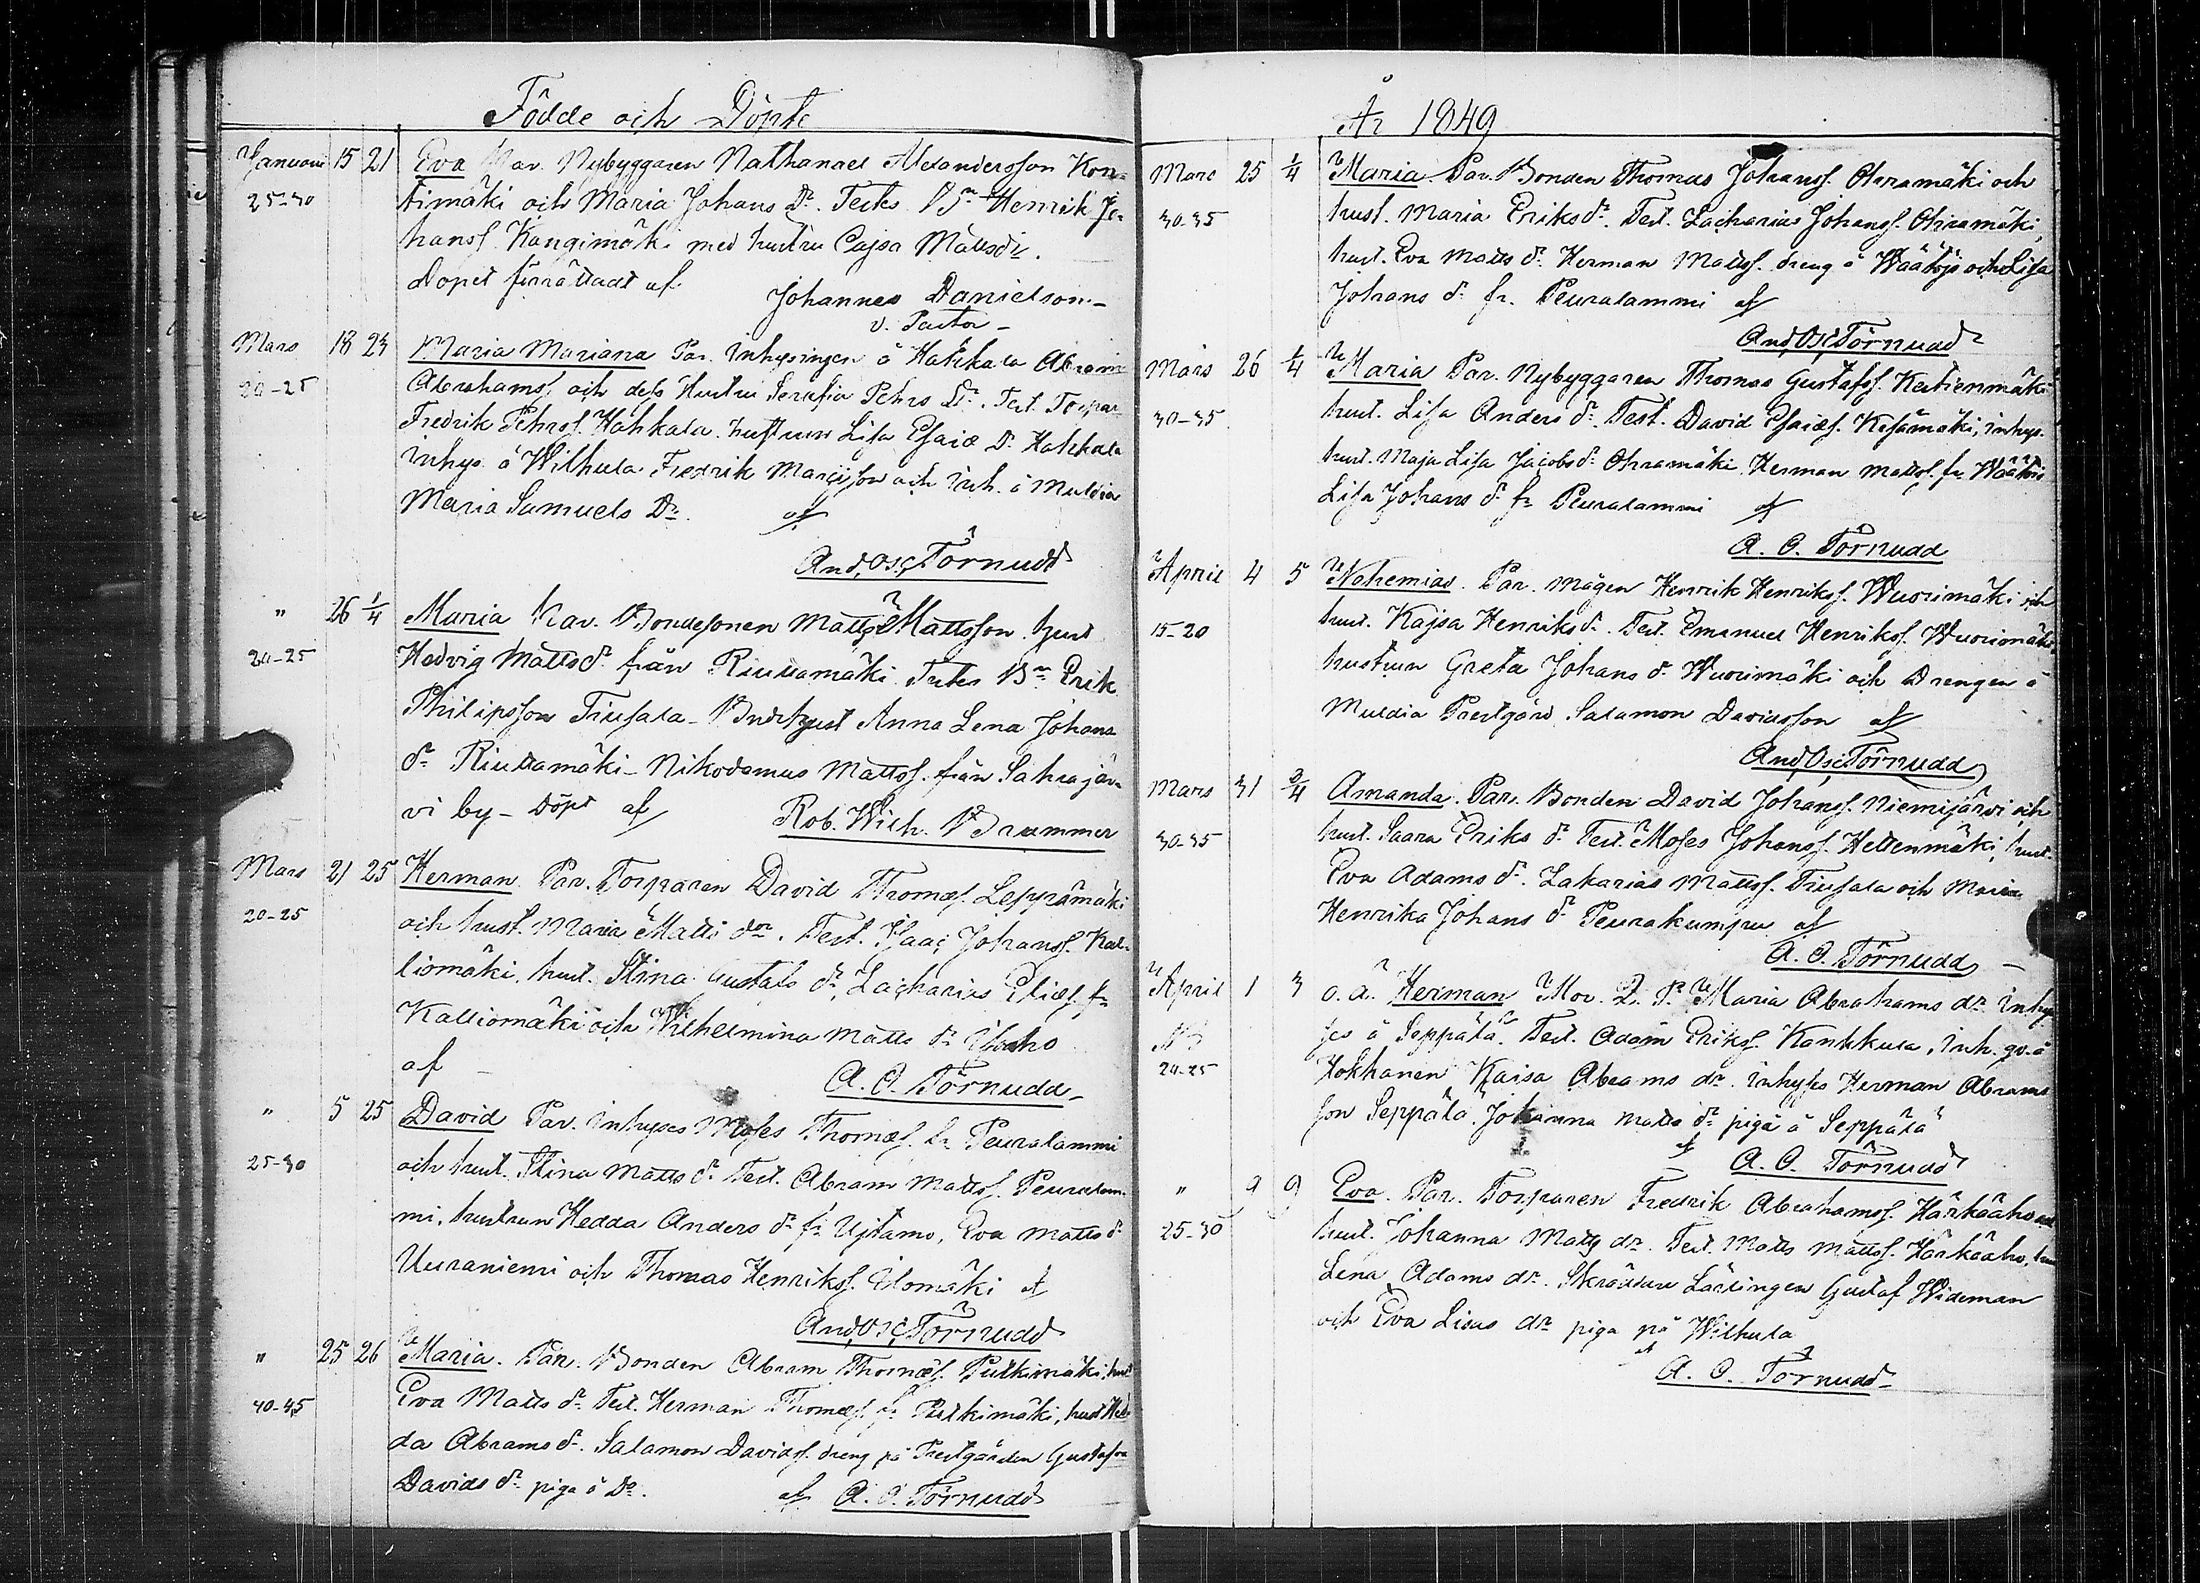 Födde och Döpte
Januari 15 21 Eva Par. Nybyggaren Nathanael Alexandersson Kon-
25-30 timäki och Maria Johans Dr. Testes Bn Henrik Jo-
hanss. Kangimäki med hustru Cajsa Mattsdr.
Dopet förrättadt af Johannes Danielson
v. Pastor
Mars 18 23 Maria Mariana Par. Inhysingen å Hahkala Abram
20-25 Abrahamss. och dess Hustru Serafia Pehrs Dr. Test. Torpar.
Fredrik Pehrss. Hahkala hustrun Lisa Esaiæ Dr. Hahkala
inhys. å Wilhula Fredrik och inh. å Muldia
Maria Samuels Dr. af
And. Osc. Törnudd
" 26 1/4 Maria Par. Bondesonen Matts Mattsson hust.
20-25 Hedvig Matts dr från Riuttamäki Testes Bn Erik
Philipsson Tiusala - Bndehust Anna Lena Johans
dr Riuttamäki - Nikodemus Mattss. från Sahrajär-
vi by - Döpt af Rob. Wilh. Brummer
Mars 21 25 Herman Par. Torparen David Thomæs. Leppämäki
20-25 och hust. Maria Matts dr. Test. Isaac Johanss. Kal-
liomäki, hust. Stina Gustafs dr, Zacharias Eliæs. fr
Kalliomäki och Wilhelmina Matts dr
af
A. O. Törnudd
" 5 25 David Par. inhyses Moses Thomæs. fr Peuralammi
25-30 och hust. Stina Matts dr Test. Abram Mattss. Peuralam-
mi, hustrun Hedda Anders dr fr Ujtamo, Eva Matts dr
Uuraniemi och Thomas Henrikss. Ulomäki af
And. Osc. Törnudd
" 25 26 Maria. Par. Bonden Abram Thomæs. Pulkimäki, hust
40-45 Eva Matts dr Test. Herman Thomæs. fr Pulkimäki, hust Hed-
da Abrams dr. Salamon Davidss. dreng på Prestgården Gustafva
Davids dr piga å Do. af A. O. Törnudd
År 1849
Mars 25 1/4 Maria Par. Bonden Thomas Johanss. Ohramäki och
30-35 hust. Maria Eriks dr. Test. Zacharias Johanss. Ohramäki,
hust. Eva Matts dr. Herman Mattss. dreng å Wäätöjs och Lisa
Johans dr fr. Peuralammi af
And. Osc. Törnudd
Mars 26 1/4 Maria Par. Nybyggaren Thomas Gustafss. Kutienmäki
30-35 hust. Lisa Anders dr Test. David Esaiæs. Kesämäki, inhys.
hust. Maja Lisa Jacobs dr Ohramäki Herman Mattss. fr Wäätöis
Lisa Johans dr fr Peuralammi af
A. O. Törnudd
April 4 5 Nehemias. Par. Mågen Henrik Henrikss. Wuorimäki och
15-20 hust. Kajsa Henriks dr. Test. Emanuel Henrikss. Wuorimäki
hustrun Greta Johans dr Wuorimäki och Drengen å
Muldia Prestgård Salamon Davidsson af
And. Osc. Törnudd
Mars 31 3/4 Amanda. Par. Bonden David Johanss. Niemijärvi och
30-35 hust. Saara Eriks dr Test. Moses Johanss. Heltenmäki, hust.
Eva Adams dr. Zakarias Mattss. Tiusala och Maria
Henrika Johans dr Peurakumpu af
A. O. Törnudd
April 1 3 o. ä. Herman Mor. Maria Abrahams dr inhy-
ses å Seppälä. Test. Adam Erikss. Kankkula, inh. qv. å
20-25 Hokkanen Kaisa Abrams dr. inhyses Herman Abrams-
son Seppälä Johanna Matts dr piga å Seppälä
af A. O. Törnudd
" 9 9 Eva. Par. Torparen Fredrik Abrahamss. Härkäaho och
25-30 hust. Johanna Matts dr. Test. Matts Mattss. Härkäaho, hust
Lena Adams dr. Skräddare Lärlingen Gustaf Wideman
och Eva Lisas dr piga på Wilhula
af
A. O. Törnudd